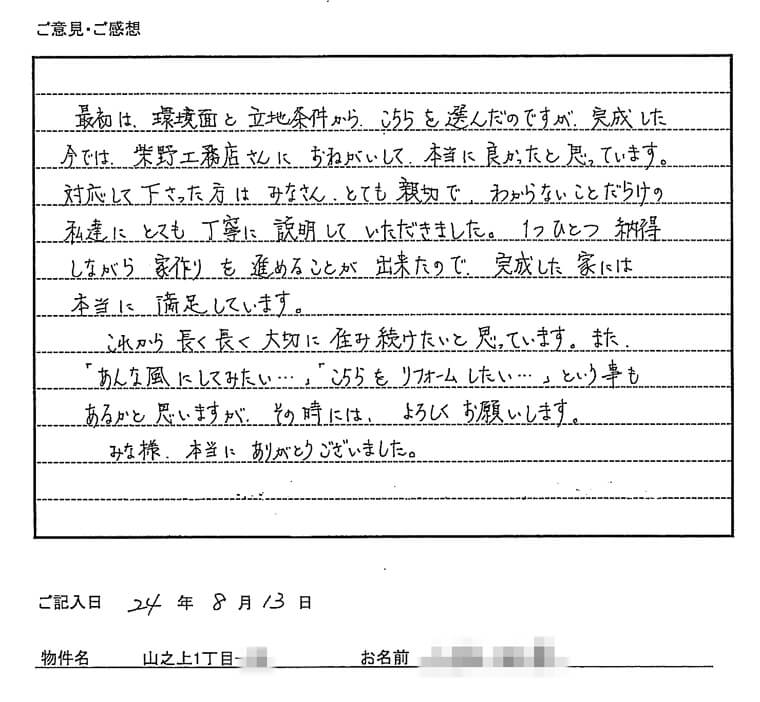 ご意見・ご感想
最初は、環境面と立地条件から、こちらを選んだのですが、完成した
今では、柴野工務店さんにおねがいして、本当に良かったと思っています。
対応して下さった方はみなさん、とても親切で、わからないことだらけの
私達にとても丁寧に説明していただきました。1つひとつ納得
しながら家作りを進めることが出来たので、完成した家には
本当に満足しています。
これから長く長く大切に住み続けたいと思っています。また、
「あんな風にしてみたい…」、「こちらをリフォームしたい…」という事も
あるかと思いますが、その時には、よろしくお願いします。
みな様、本当にありがとうございました。
ご記入日 24年8月13日
物件名 山之上1丁目 お名前